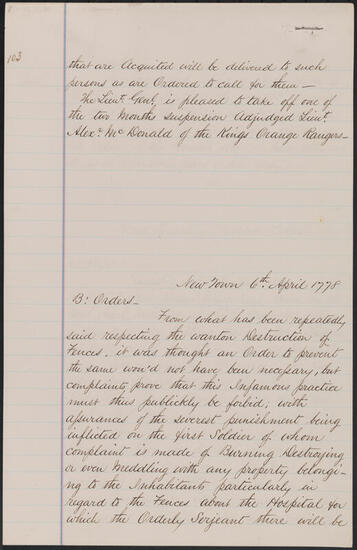 103
that are Acquited will be delivered to such
persons as are Ordered to call for them —
The Lieut. Genl. is pleased to take off one of
the two Months suspension adjudged Lieut.
Alexr. McDonald of the Kings Orange Rangers —
New Town 6th April 1778
B: Orders —
From what has been repeatedly
said respecting the wanton Destruction of
Fences, it was thought an Order to prevent
the same wou'd not have been necessary, but
complaints prove that this Infamous practice
must thus publickly be forbid; with
assurances of the severest punishment being
inflicted on the first Soldier of whom
complaint is made of Burning Destroying
or even Meddling with any property belong-
ing to the Inhabitants particularly in
regard to the Fences about the Hospital for
which the Orderly Serjeant there will be